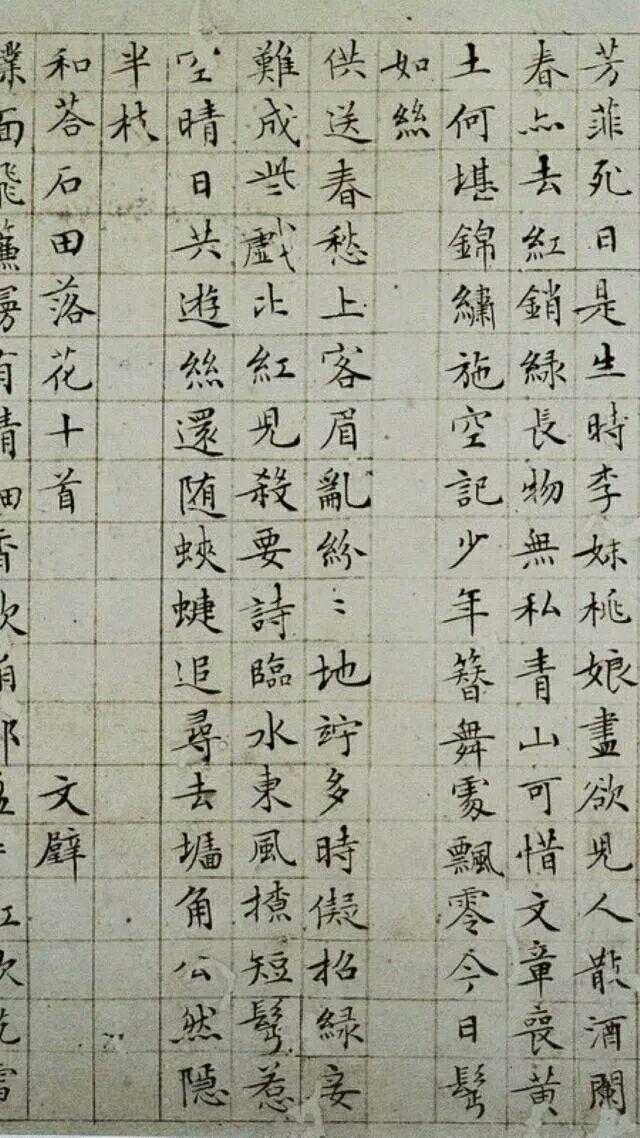 芳菲死日是生時李妹桃娘盡欲兒人散酒闌
春亦去紅銷緑長物無私青山可惜文章喪黃
土何堪錦繡施空記少年簪舞處飄零今日鬢
如絲
供送春愁上客眉亂紛〻地竚多時儗招緑妾
難成些戲比紅兒殺要詩臨水東風撩短鬢惹
空晴日共遊絲還随蛺蜨追尋去墻角公然隱
半枝
和荅石田落花十首 文璧
面飛簾